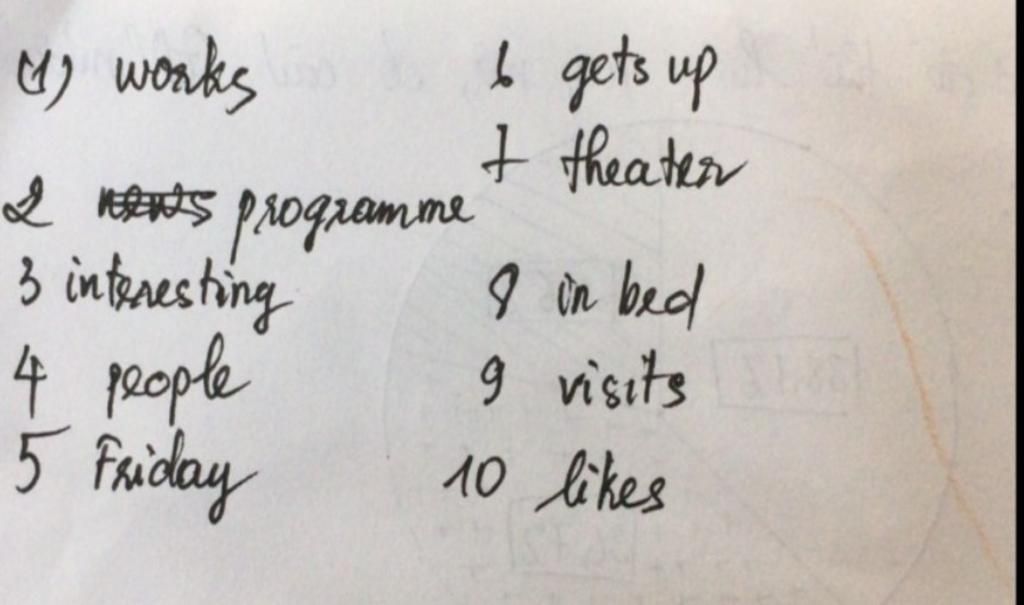 (1) works
2 news programme
3 interesting
4 people
5 Friday
6 gets up
7 theater
8 in bed
9 visits
10 likes